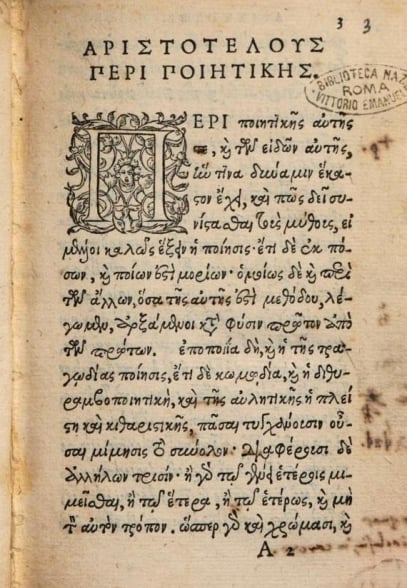 3 3
ΑΡΙΣΤΟΤΕΛΟΥΣ
ΠΕΡΙ ΠΟΙΗΤΙΚΗΣ.
BIBLIOTECA NAZ
ROMA
VITTORIO EMANUELE
ΠΕΡΙ ποιητικῆς αὐτῆς
τε, καὶ τῶν εἰδῶν αὐτῆς,
ἥν τινα δύναμιν ἕκα-
στον ἔχει, καὶ πῶς δεῖ συ-
νίστασθαι τοὺς μύθους, εἰ
μέλλοι καλῶς ἕξειν ἡ ποίησις· ἔτι δὲ ἐκ πό-
σων, καὶ ποίων ἐστὶ μορίων· ὁμοίως δὲ καὶ περὶ
τῶν ἄλλων, ὅσα τῆς αὐτῆς ἐστὶ μεθόδου, λέ-
γωμεν, ἀρξάμενοι κατὰ φύσιν πρῶτον ἀπὸ
τῶν πρώτων. ἐποποιΐα δὴ, καὶ ἡ τῆς τρα-
γῳδίας ποίησις, ἔτι δὲ κωμῳδία, καὶ ἡ διθυ-
ραμβοποιητικὴ, καὶ τῆς αὐλητικῆς ἡ πλεί
στη καὶ κιθαριστικῆς, πᾶσαι τυγχάνουσιν οὖ-
σαι μίμησις τὸ σύνολον. Διαφέρουσι δὲ
ἀλλήλων τρισίν· ἢ γὰρ τῷ γένει ἑτέροις μι-
μεῖσθαι, ἢ τῷ ἕτερα, ἢ τῷ ἑτέρως, καὶ μὴ
τὸν αὐτὸν τρόπον. ὥσπερ γὰρ καὶ χρώμασι, καὶ
A 2